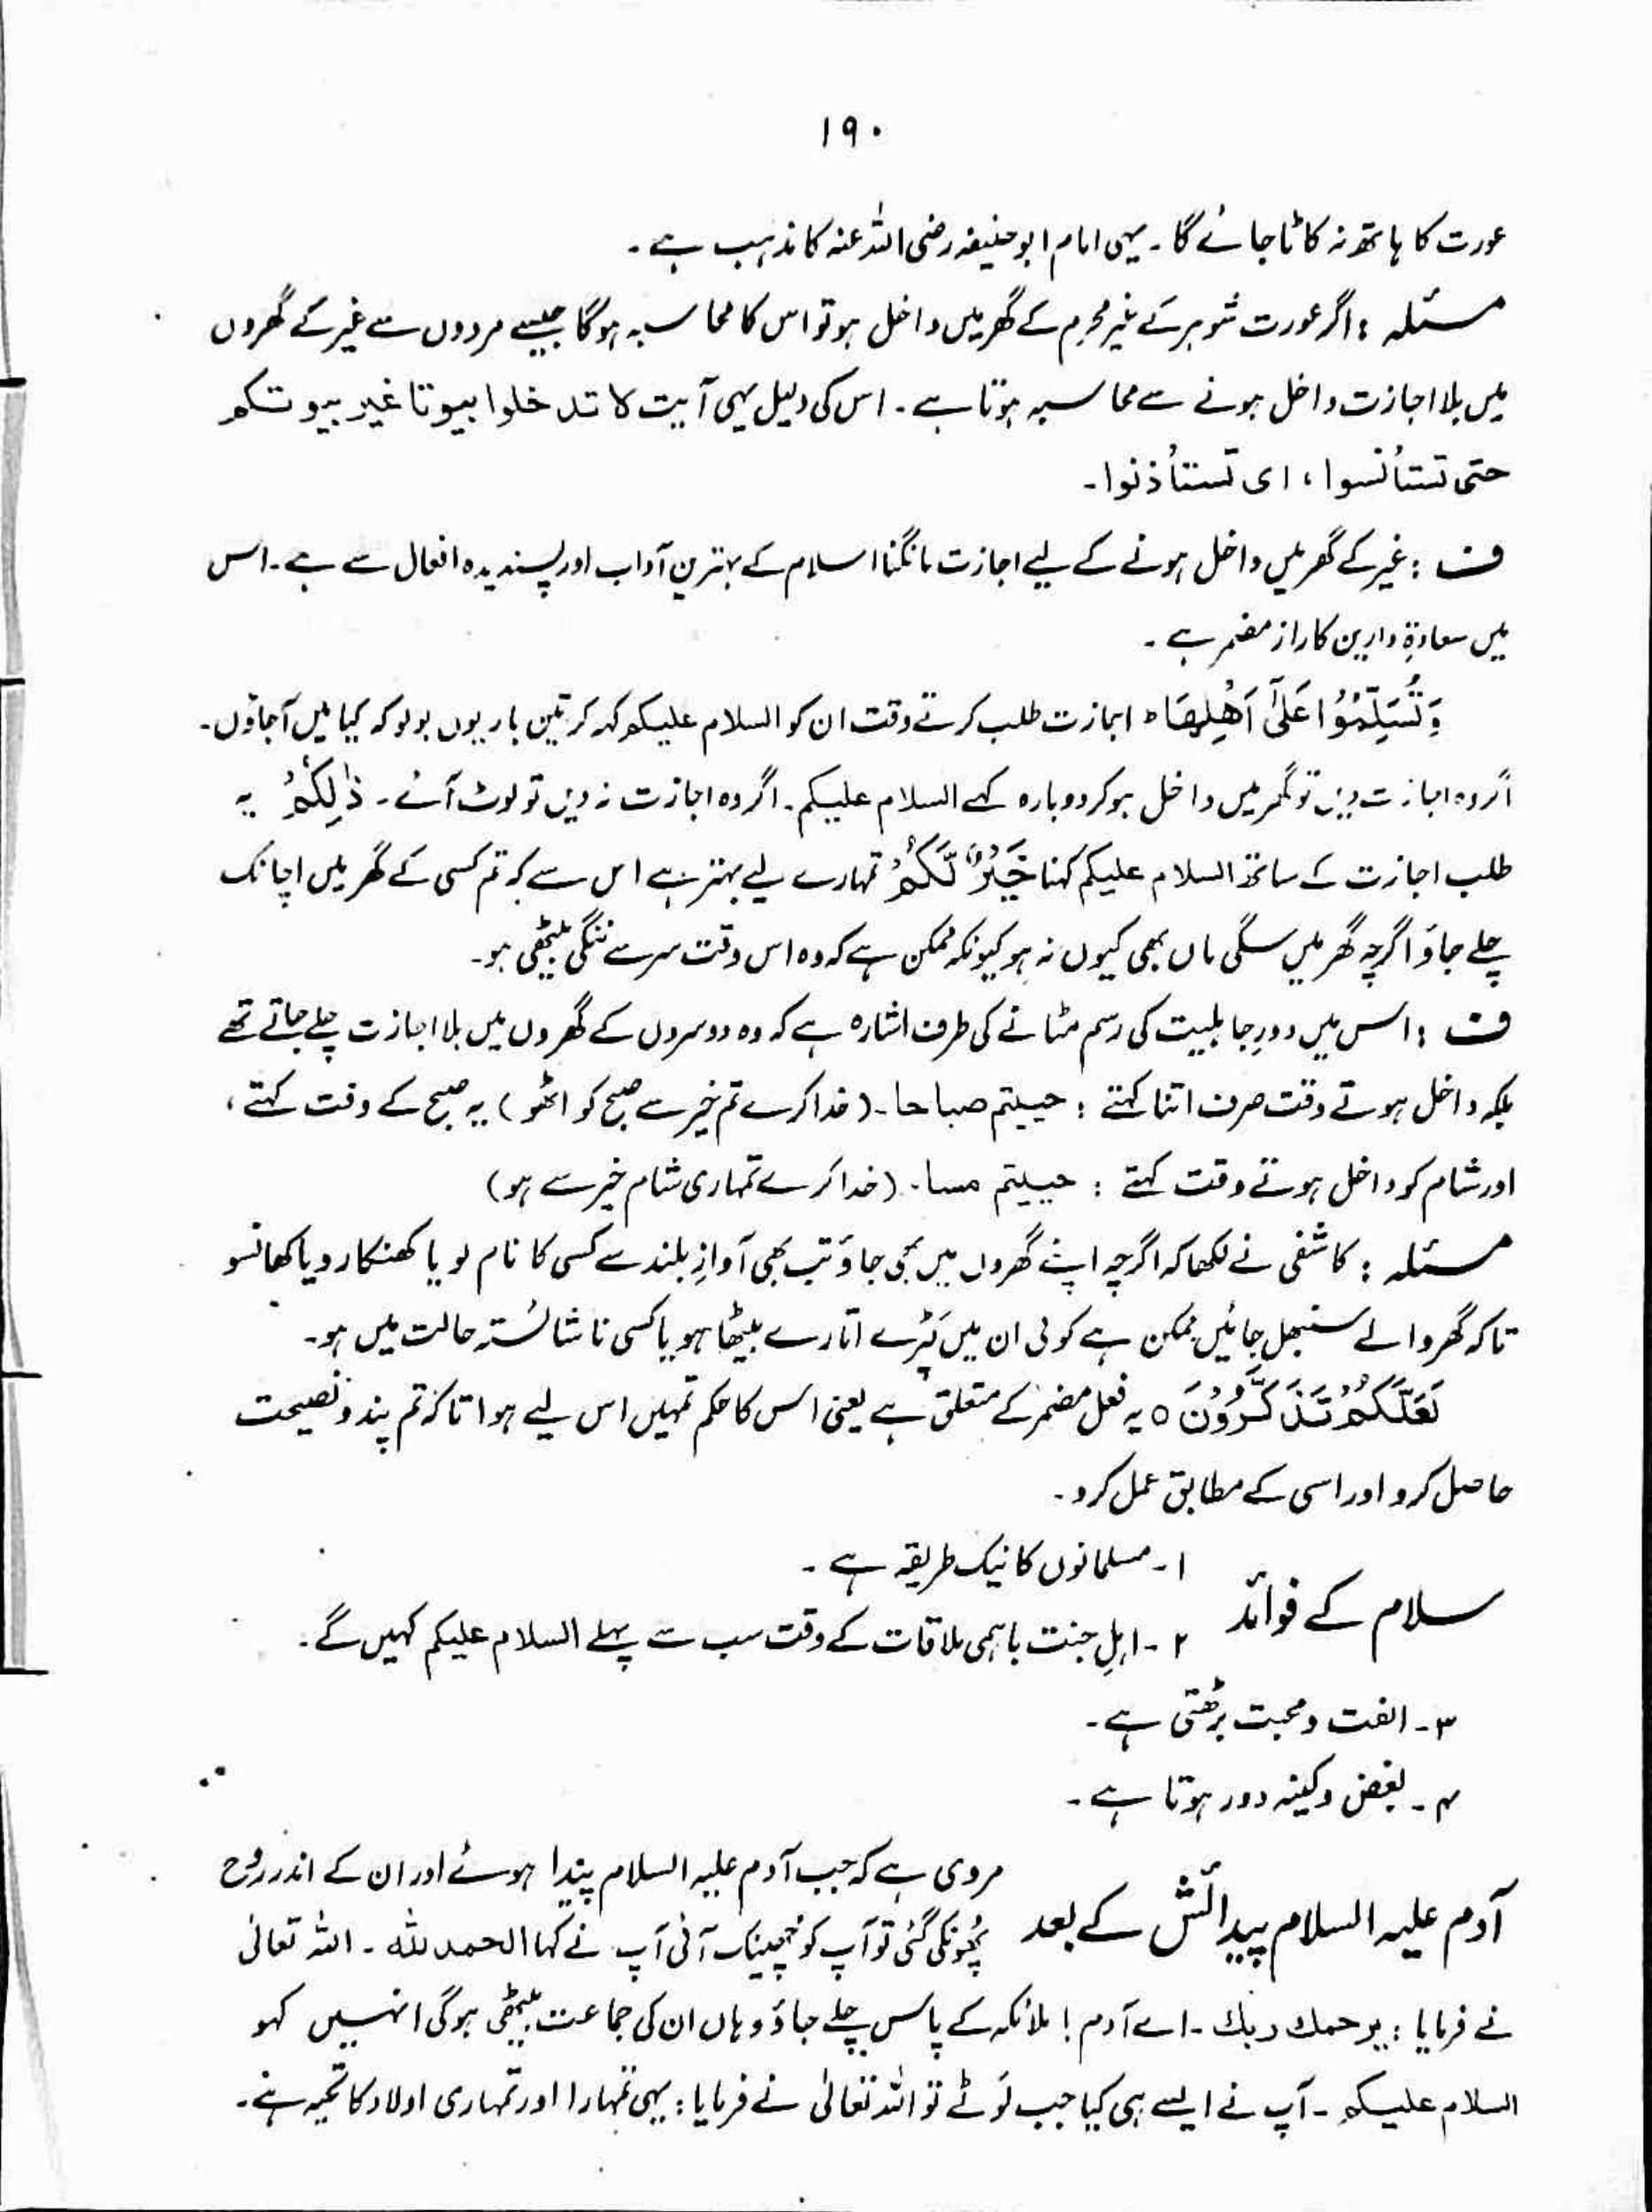 ۱۹۰
عورت کا ہاتھ نہ کاٹا جائے گا۔ یہی امام ابوحنیفہ رضی اللہ عنہ کا مذہب ہے۔
مسئلہ : اگر عورت شوہر کے غیر محرم کے گھر میں داخل ہو تو اس کا محاسبہ ہوگا جیسے مردوں سے غیر کے گھروں
میں بلا اجازت داخل ہونے سے محاسبہ ہوتا ہے۔ اس کی دلیل یہی آیت لا تدخلوا بیوتا غیر بیوتکم
حتی تستأنسوا ، ای تستأذنوا۔
ف : غیر کے گھر میں داخل ہونے کے لیے اجازت مانگنا اسلام کے بہترین آداب اور پسندیدہ افعال سے ہے۔ اس
میں سعادۃ دارین کا راز مضمر ہے۔
وَتُسَلِّمُوْا عَلٰٓی اَهْلِهَا ط اجازت طلب کرتے وقت ان کو السلام علیکم کہہ کر تین بار یوں بولو کہ کیا میں آجاؤں۔
اگر وہ اجازت دیں تو گھر میں داخل ہو کر دوبارہ کہے السلام علیکم۔ اگر وہ اجازت نہ دیں تو لوٹ آئے۔ ذٰلِکُمْ یہ
طلب اجازت کے ساتھ السلام علیکم کہنا خَیْرٌ لَّکُمْ تمہارے لیے بہتر ہے اس سے کہ تم کسی کے گھر میں اچانک
چلے جاؤ اگرچہ گھر میں سگی ماں بھی کیوں نہ ہو کیونکہ ممکن ہے کہ وہ اس وقت سر سے ننگی بیٹھی ہو۔
ف : اس میں دورِ جاہلیت کی رسم مٹانے کی طرف اشارہ ہے کہ وہ دوسروں کے گھروں میں بلا اجازت چلے جاتے تھے
بلکہ داخل ہوتے وقت صرف اتنا کہتے : حییتم صباحا۔ (خدا کرے تم خیر سے صبح کو اٹھو) یہ صبح کے وقت کہتے ،
اور شام کو داخل ہوتے وقت کہتے : حییتم مسا۔ (خدا کرے تمہاری شام خیر سے ہو)
مسئلہ : کاشفی نے لکھا کہ اگرچہ اپنے گھروں میں بھی جاؤ تب بھی آوازِ بلند سے کسی کا نام لو یا کھنکار دیا کھانسو
تاکہ گھر والے سنبھل جائیں ممکن ہے کوئی ان میں کپڑے اتارے بیٹھا ہو یا کسی ناشائستہ حالت میں ہو۔
لَعَلَّکُمْ تَذَکَّرُوْنَ ○ یہ فعل مضمر کے متعلق ہے یعنی اس کا حکم تمہیں اس لیے ہوا تاکہ تم پند و نصیحت
حاصل کرو اور اسی کے مطابق عمل کرو۔
سلام کے فوائد
۱۔ مسلمانوں کا نیک طریقہ ہے۔
۲۔ اہلِ جنت باہمی ملاقات کے وقت سب سے پہلے السلام علیکم کہیں گے۔
۳۔ الفت و محبت بڑھتی ہے۔
۴۔ بغض و کینہ دور ہوتا ہے۔
آدم علیہ السلام پیدائش کے بعد
مروی ہے کہ جب آدم علیہ السلام پیدا ہوئے اور ان کے اندر روح
پھونکی گئی تو آپ کو چھینک آئی آپ نے کہا الحمد للہ۔ اللہ تعالیٰ
نے فرمایا : یرحمك ربك۔ اے آدم! ملائکہ کے پاس چلے جاؤ وہاں ان کی جماعت بیٹھی ہوگی انہیں کہو
السلام علیکم۔ آپ نے ایسے ہی کیا جب لوٹے تو اللہ تعالیٰ نے فرمایا : یہی تمہارا اور تمہاری اولاد کا تحیہ ہے۔